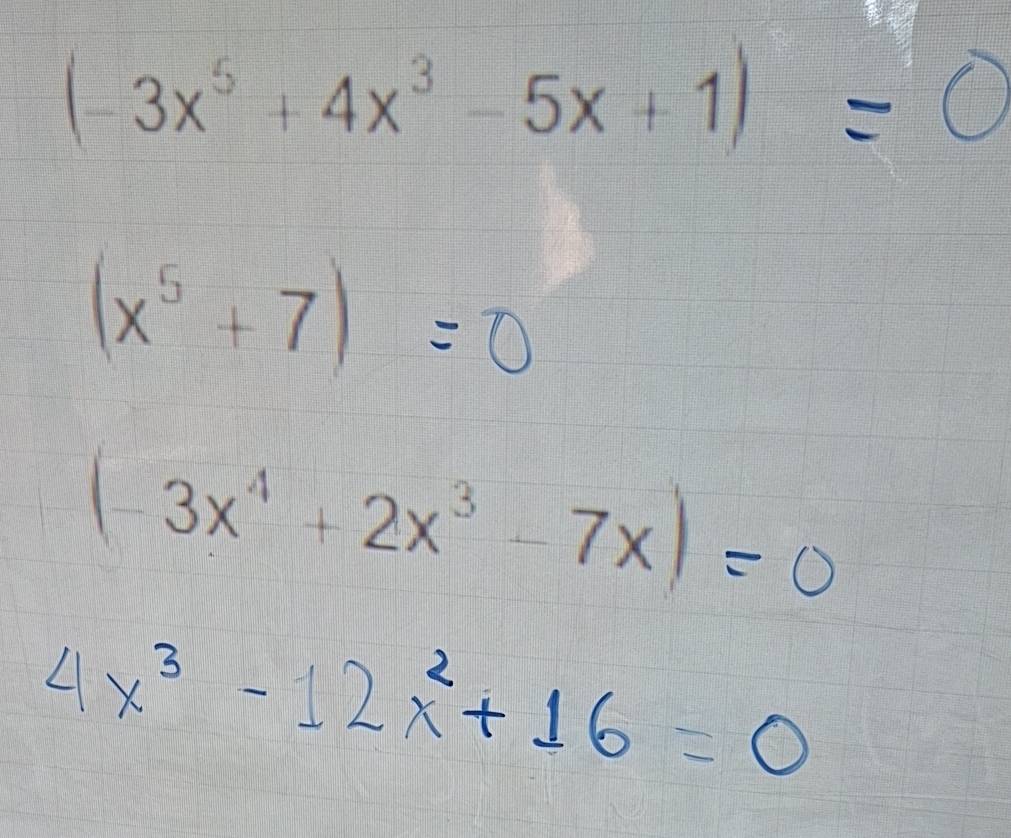 (-3x⁵ + 4x³ - 5x + 1) = 0
(x⁵ + 7) = 0
(-3x⁴ + 2x³ - 7x) = 0
4x³ - 12x² + 16 = 0